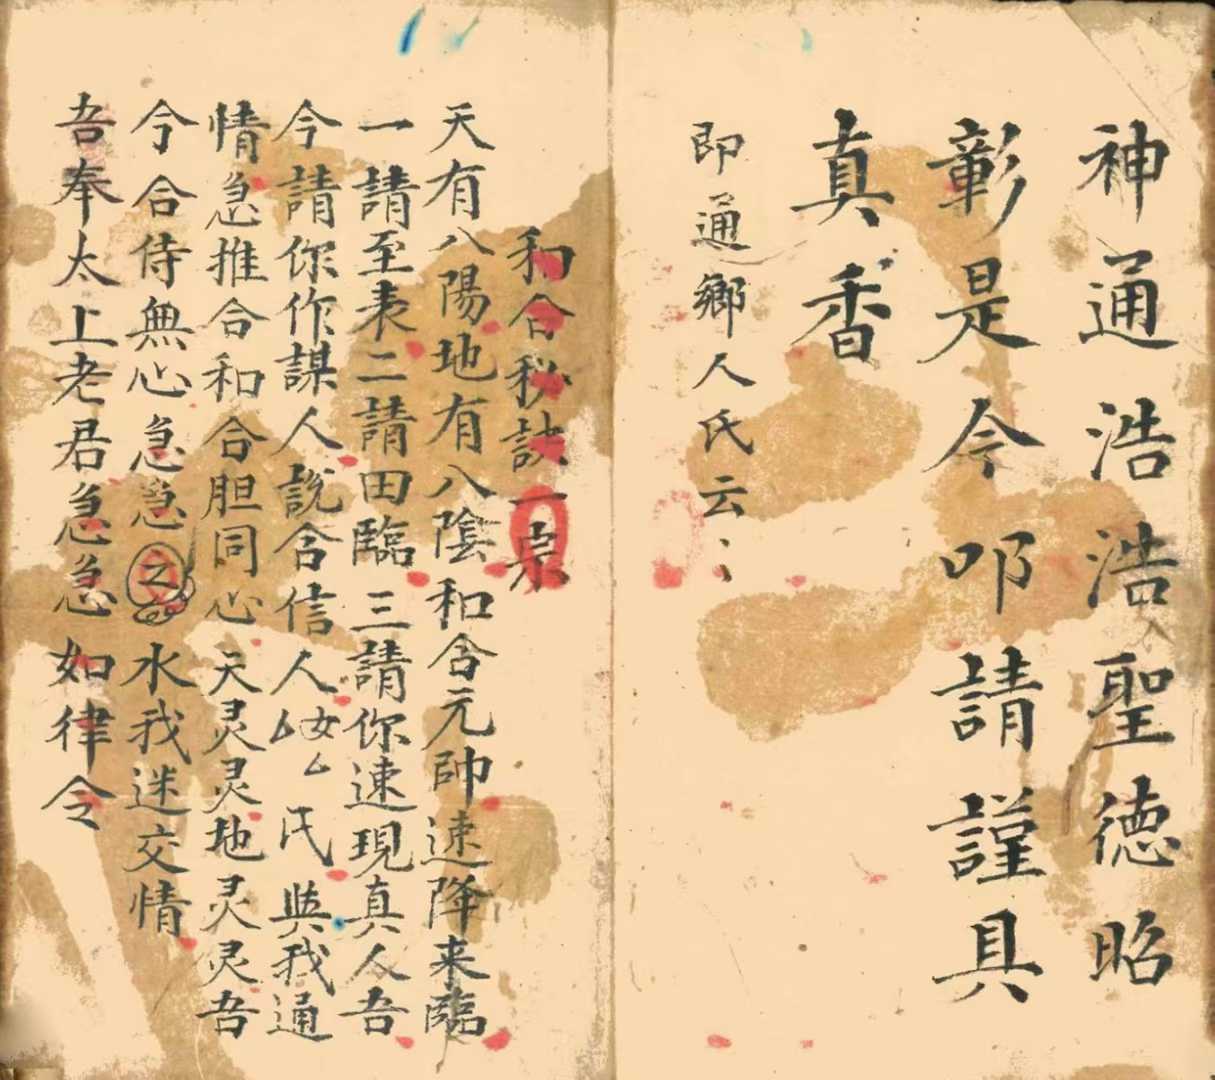 神通浩浩聖德昭
彰是今叩請謹具
真香
即通鄉人氏云、、
和合秘訣一宗
天有八陽地有八陰和合元帥速降来臨
一請至表二請田臨三請你速現真人吾
今請你作謀人說合信人厶女厶氏與我通
情急推合和合胆同心天灵灵地灵灵吾
令合侍無心急急之水我迷交情
吾奉太上老君急急如律令